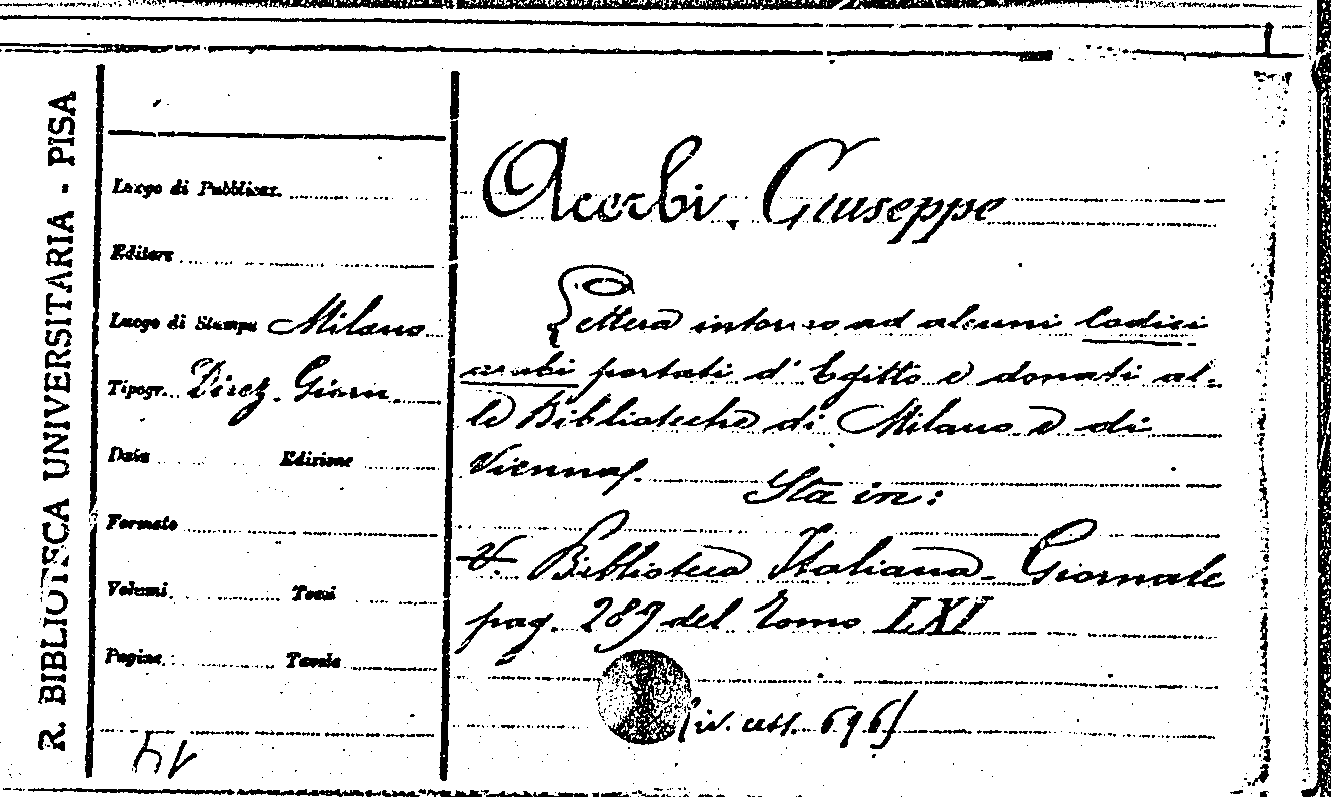 R. BIBLIOTECA UNIVERSITARIA - PISA
Luogo di Pubblicaz.
Editore
Luogo di Stampa Milano
Tipogr. Direz. Giorn.
Data Edizione
Formato
Volumi Tomi
Pagine Tavole
Acerbi, Giuseppe
Lettera intorno ad alcuni Codici
arabi portati d'Egitto e donati al-
le Biblioteche di Milano e di
Vienna.
Sta in:
V. Biblioteca Italiana - Giornale
pag. 289 del Tomo LXI
696)